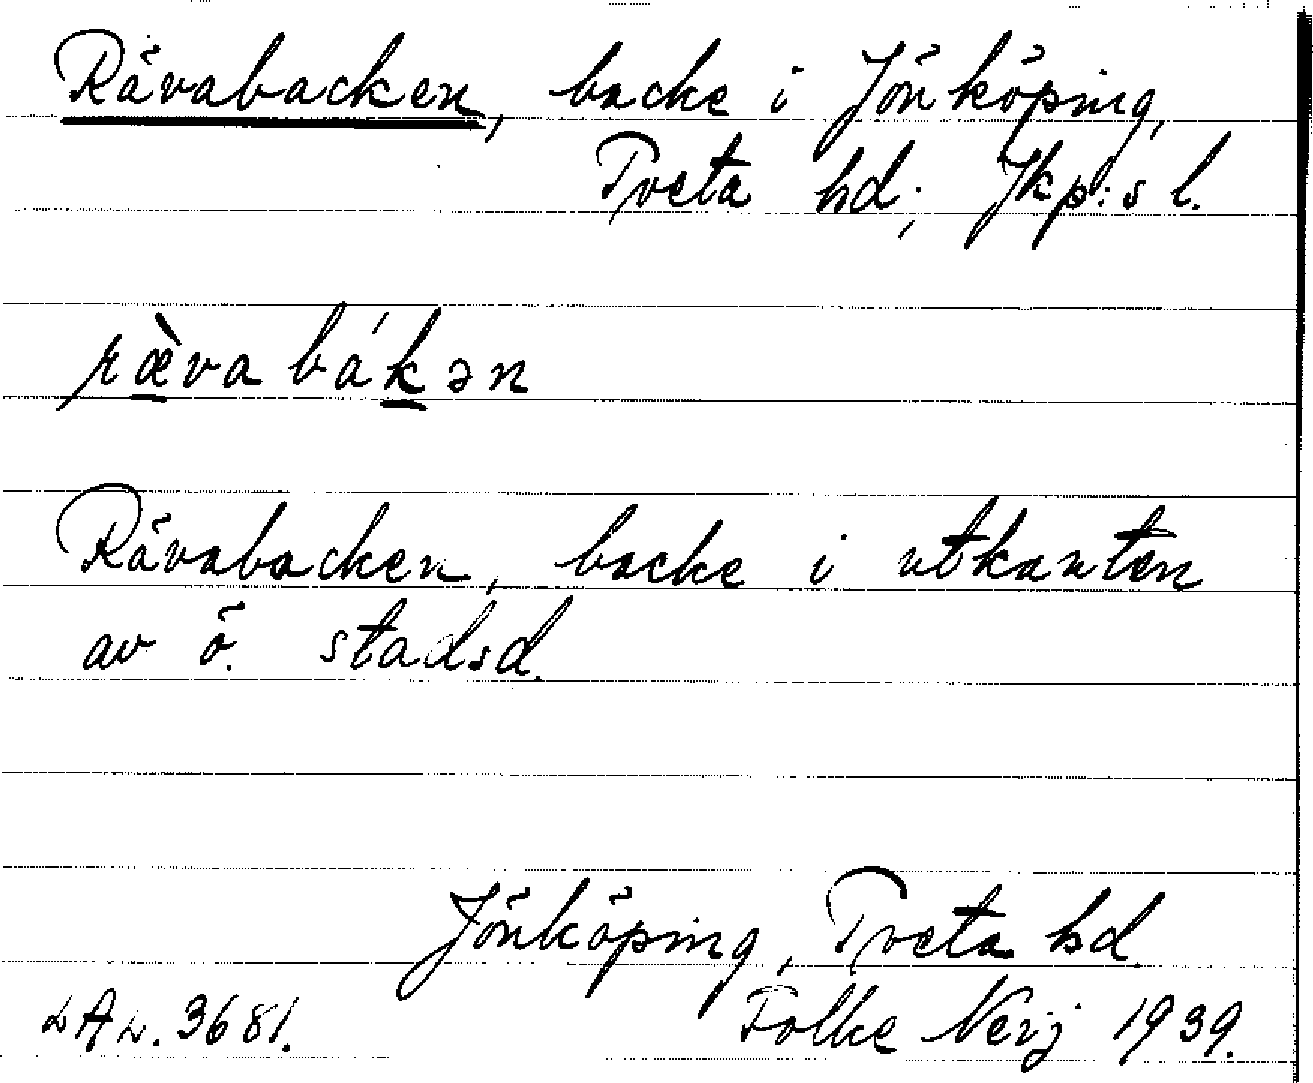 Rävabacken, backe i Jönköping,
Tveta hd; Jkp:s l.
ræ̀va bákən
Rävabacken, backe i utkanten
av ö. stadsd.
Jönköping, Tveta hd
LAL. 3681. Folke Nerj 1939.